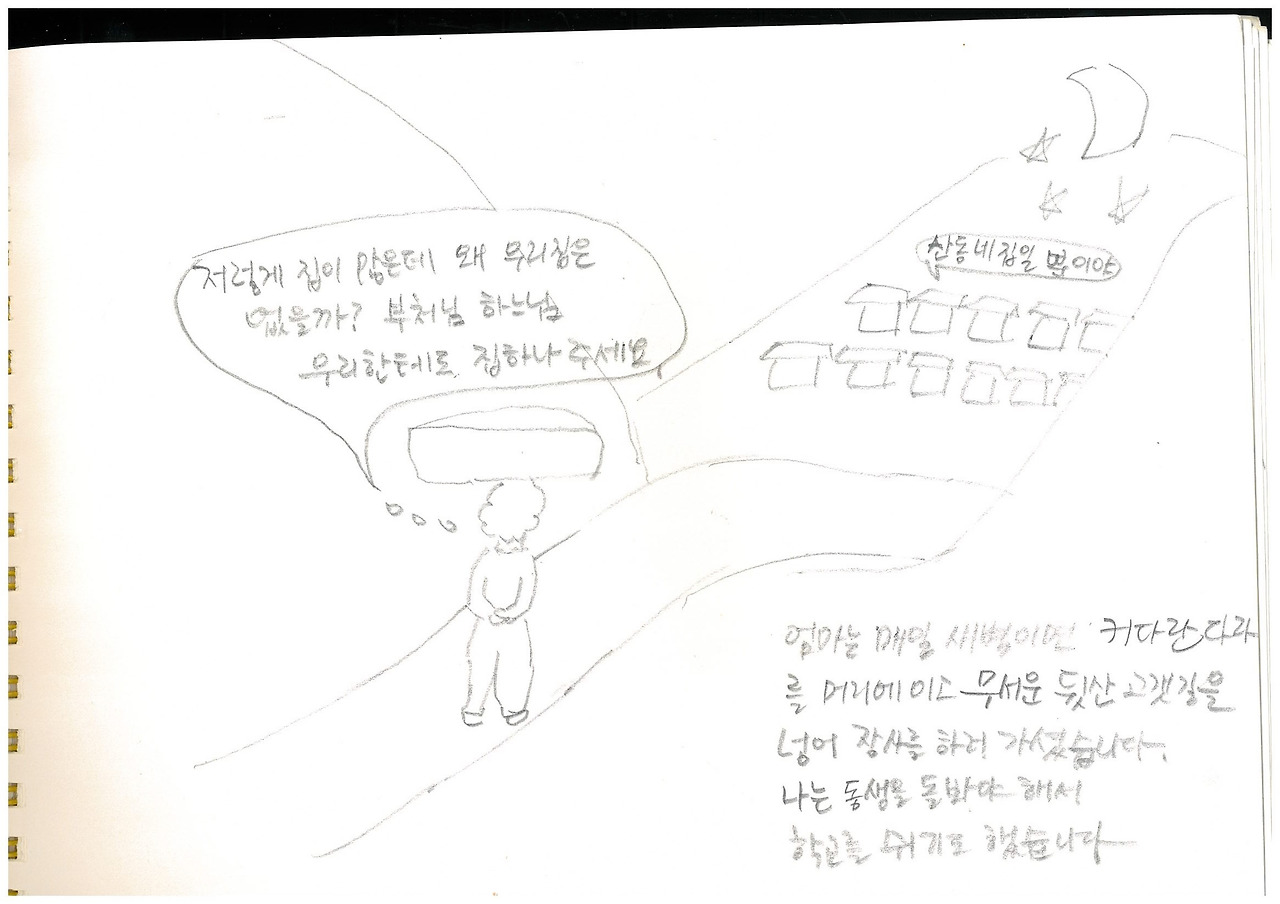 저렇게 집이 많은데 왜 우리집은
없을까? 부처님 하느님
우리한테도 집하나 주세요
산동네집일 뿐이야
엄마는 매일 새벽이면 커다란다라
를 머리에이고 무서운 뒷산고갯길을
넘어 장사를 하러 가셨습니다.
나는 동생을 돌봐야 해서
학교를 쉬기도 했습니다